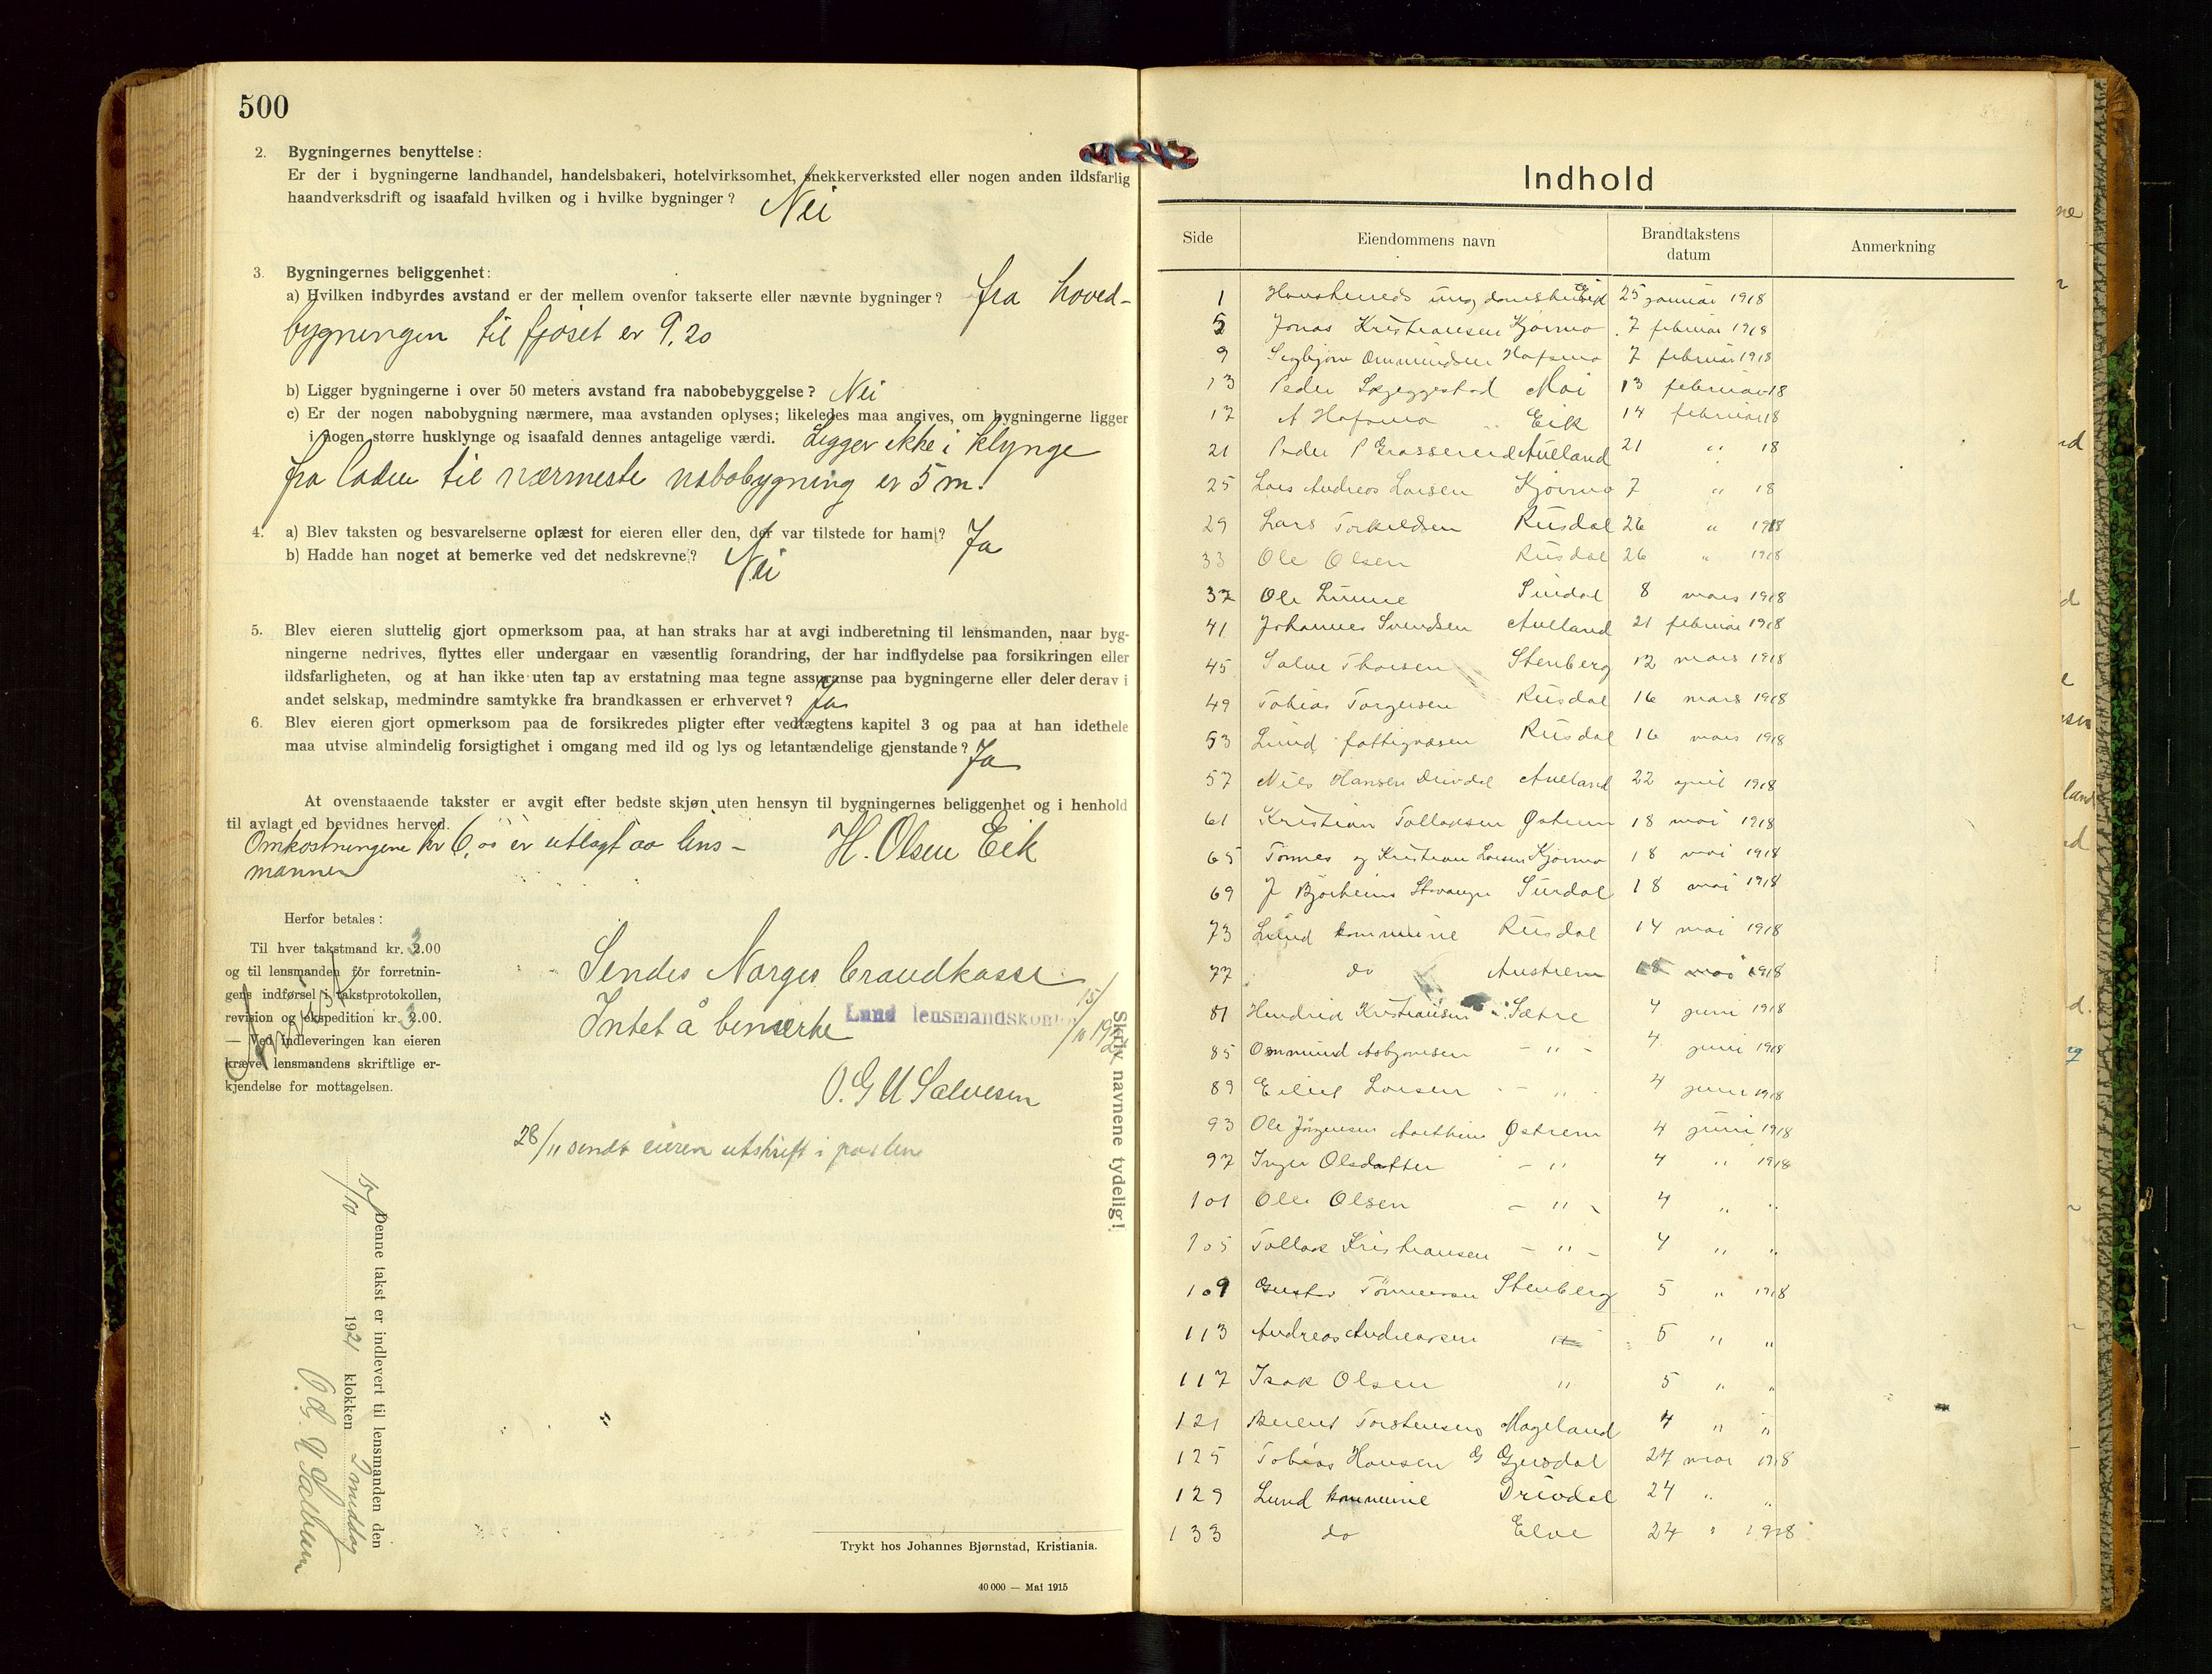 500
2. Bygningernes benyttelse:
Er der i bygningerne landhandel, handelsbakeri, hotelvirksomhet, snekkerverksted eller nogen anden ildsfarlig
haandverksdrift og isaafald hvilken og i hvilke bygninger? Nei
3. Bygningernes beliggenhet:
a) Hvilken indbyrdes avstand er der mellem ovenfor takserte eller nævnte bygninger? fra hoved-
bygningen til fjøset er 9,20
b) Ligger bygningerne i over 50 meters avstand fra nabobebyggelse? Nei
c) Er der nogen nabobygning nærmere, maa avstanden oplyses; likeledes maa angives, om bygningerne ligger
i nogen større husklynge og isaafald dennes antagelige værdi. Ligger ikke i klynge
fra laden til nærmeste nabobygning er 5 m.
4. a) Blev taksten og besvarelserne oplæst for eieren eller den, der var tilstede for ham? Ja
b) Hadde han noget at bemerke ved det nedskrevne? Nei
5. Blev eieren sluttelig gjort opmerksom paa, at han straks har at avgi indberetning til lensmanden, naar byg-
ningerne nedrives, flyttes eller undergaar en væsentlig forandring, der har indflydelse paa forsikringen eller
ildsfarligheten, og at han ikke uten tap av erstatning maa tegne assuranse paa bygningerne eller deler derav i
andet selskap, medmindre samtykke fra brandkassen er erhvervet? Ja
6. Blev eieren gjort opmerksom paa de forsikredes pligter efter vedtægtens kapitel 3 og paa at han idethele
maa utvise almindelig forsigtighet i omgang med ild og lys og letantændelige gjenstande? Ja
At ovenstaaende takster er avgit efter bedste skjøn uten hensyn til bygningernes beliggenhet og i henhold
til avlagt ed bevidnes herved.
Omkostningene kr 6,00 er utlagt av lens-
mannen
H. Olsen Eik
Herfor betales:
Til hver takstmand kr. 3.00
og til lensmanden for forretnin-
gens indførsel i takstprotokollen,
revision og ekspedition kr. 3.00.
— Ved indleveringen kan eieren
kræve lensmandens skriftlige er-
kjendelse for mottagelsen.
Sendes Norges brandkasse
Intet å bemerke
Lund lensmandskontor 15/10 1921
O. G. U Salvesen
28/11 sendt eieren utskrift i posten
Skriv navnene tydelig!
Denne takst er indlevert til lensmanden den
15/10 1921 klokken middag
Trykt hos Johannes Bjørnstad, Kristiania.
40 000 — Mai 1915
Indhold
Side Eiendommens navn Brandtakstens datum Anmerkning
1 ungdoms Eik 25 januar 1918
5 Jonas Kristiansen Kjørmo 7 februar 1918
9 Ommundsen Hafsmo 7 februar 1918
13 Peder Skjeggestad Moi 13 februar 18
17 A Hafsmo " Eik 14 februar 18
21 Peder P Aulland 21 " 18
25 Lars Andreas Larsen Kjørmo 7 " 18
29 Lars Torkildsen Rusdal 26 " 1918
33 Ole Olsen Rusdal 26 " 1918
37 Ole Surdal 8 mars 1918
41 Johannes Svendsen Aulland 21 februar 1918
45 Salve Thorsen Stenberg 12 mars 1918
49 Tobias Torgersen Rusdal 16 mars 1918
53 Lund fattigvæsen Rusdal 16 mars 1918
57 Nils Hansen Drivdal Aulland 22 april 1918
61 Kristian Tollaksen Østrem 18 mai 1918
65 Tønnes og Kristian Larsen Kjørmo 18 mai 1918
69 J Bjørheim Stavanger Surdal 18 mai 1918
73 Lund kommune Rusdal 14 mai 1918
77 do Austrem 18 mai 1918
81 Hendrik Kristiansen Sætre 4 juni 1918
85 Ommund Asbjørnsen - " - 4 juni 1918
89 Eilert Larsen - " - 4 juni 1918
93 Ole Jørgensen Østrem 4 juni 1918
97 Inger Olsdatter - " 4 " 1918
101 Olle Olsen - " - 4 " "
105 Tollak Kristiansen - " - 4 " "
109 Gustav Tønnesen Stenberg 5 " 1918
113 Andreas Andreassen " 5 " "
117 Isak Olsen " 5 " "
121 Berent Torstensen Mageland 4 " "
125 Tobias Hansen G Gjersdal 24 mai 1918
129 Lund kommune Drivdal 24 " "
133 do Elve 24 " 1918